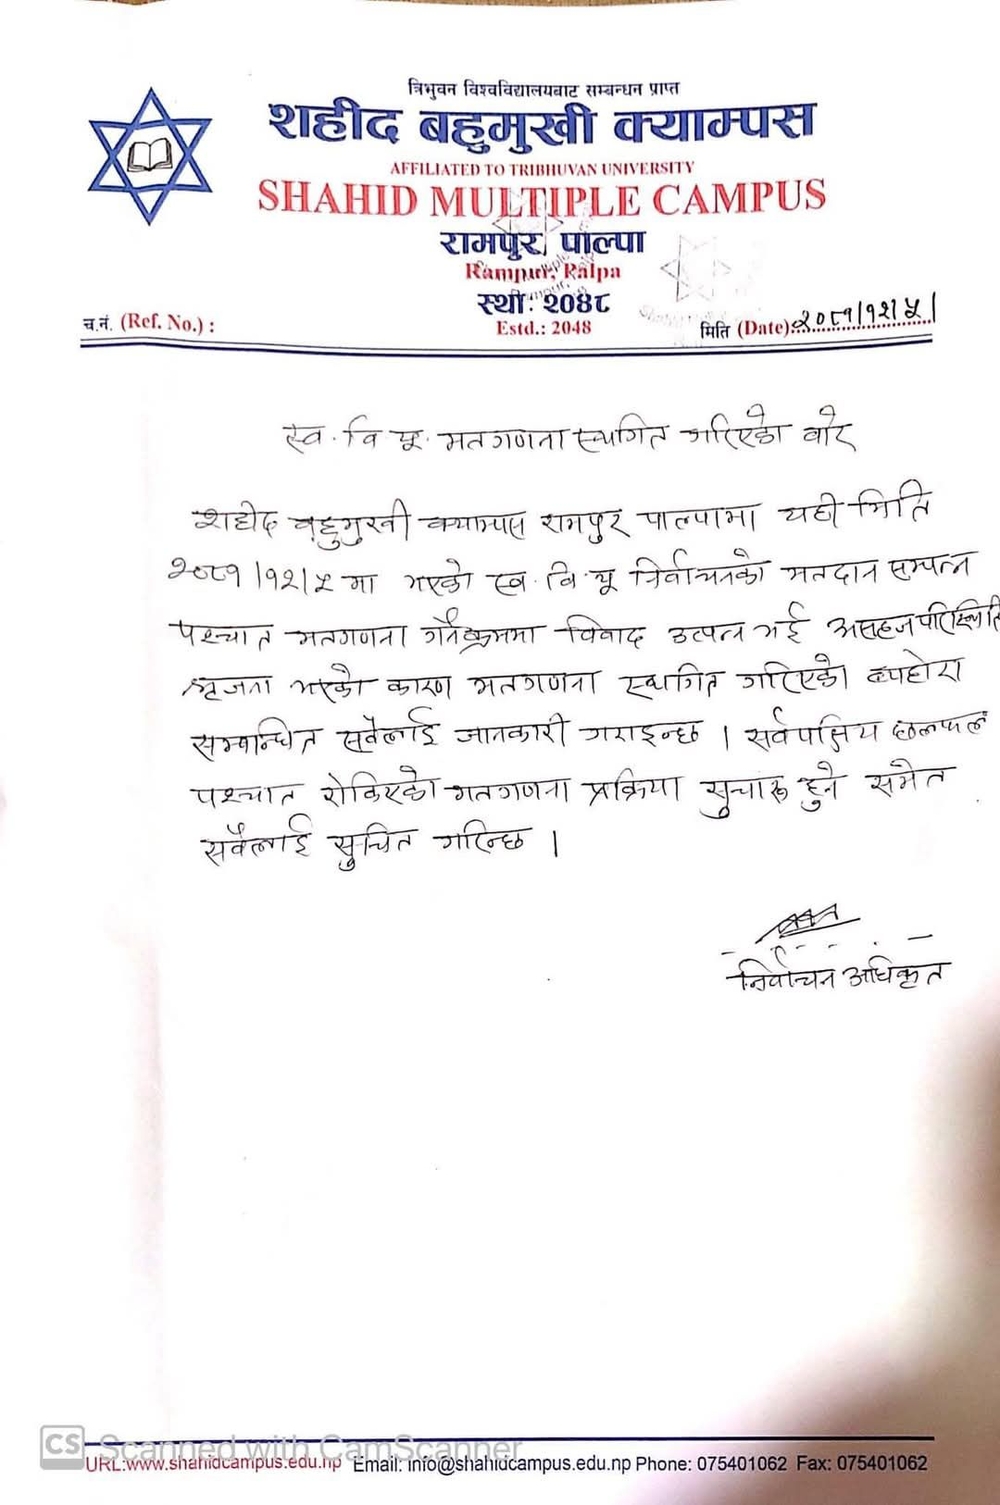 त्रिभुवन विश्वविद्यालयबाट सम्बन्धन प्राप्त
शहीद बहुमुखी क्याम्पस
AFFILIATED TO TRIBHUVAN UNIVERSITY
SHAHID MULTIPLE CAMPUS
रामपुर, पाल्पा
Rampur, Palpa
स्थी: २०४८
Estd.: 2048
च.नं. (Ref. No.) :
मिति (Date): २०८१/१२/५।
स्व. वि यू. मतगणना स्थगित गरिएको वारे
शहीद वहुमुखी क्याम्पस रामपुर पाल्पामा यही मिति
२०८१/१२/५ मा भएको स्व. वि. यू निर्वाचनको मतदान सम्पन्न
पश्चात मतगणना गर्नेक्रममा विवाद उत्पन्न भई असहज परिस्थिति
श्रृजना भएको कारण मतगणना स्थगित गरिएको व्यहोरा
सम्वन्धित सवैलाई जानकारी गराइन्छ । सर्वपक्षिय छलफल
पश्चात रोकिएको मतगणना प्रक्रिया सुचारू हुने समेत
सवैलाई सुचित गरिन्छ ।
निर्वाचन अधिकृत
CS Scanned with CamScanner
URL:www.shahidcampus.edu.np Email: info@shahidcampus.edu.np Phone: 075401062 Fax: 075401062